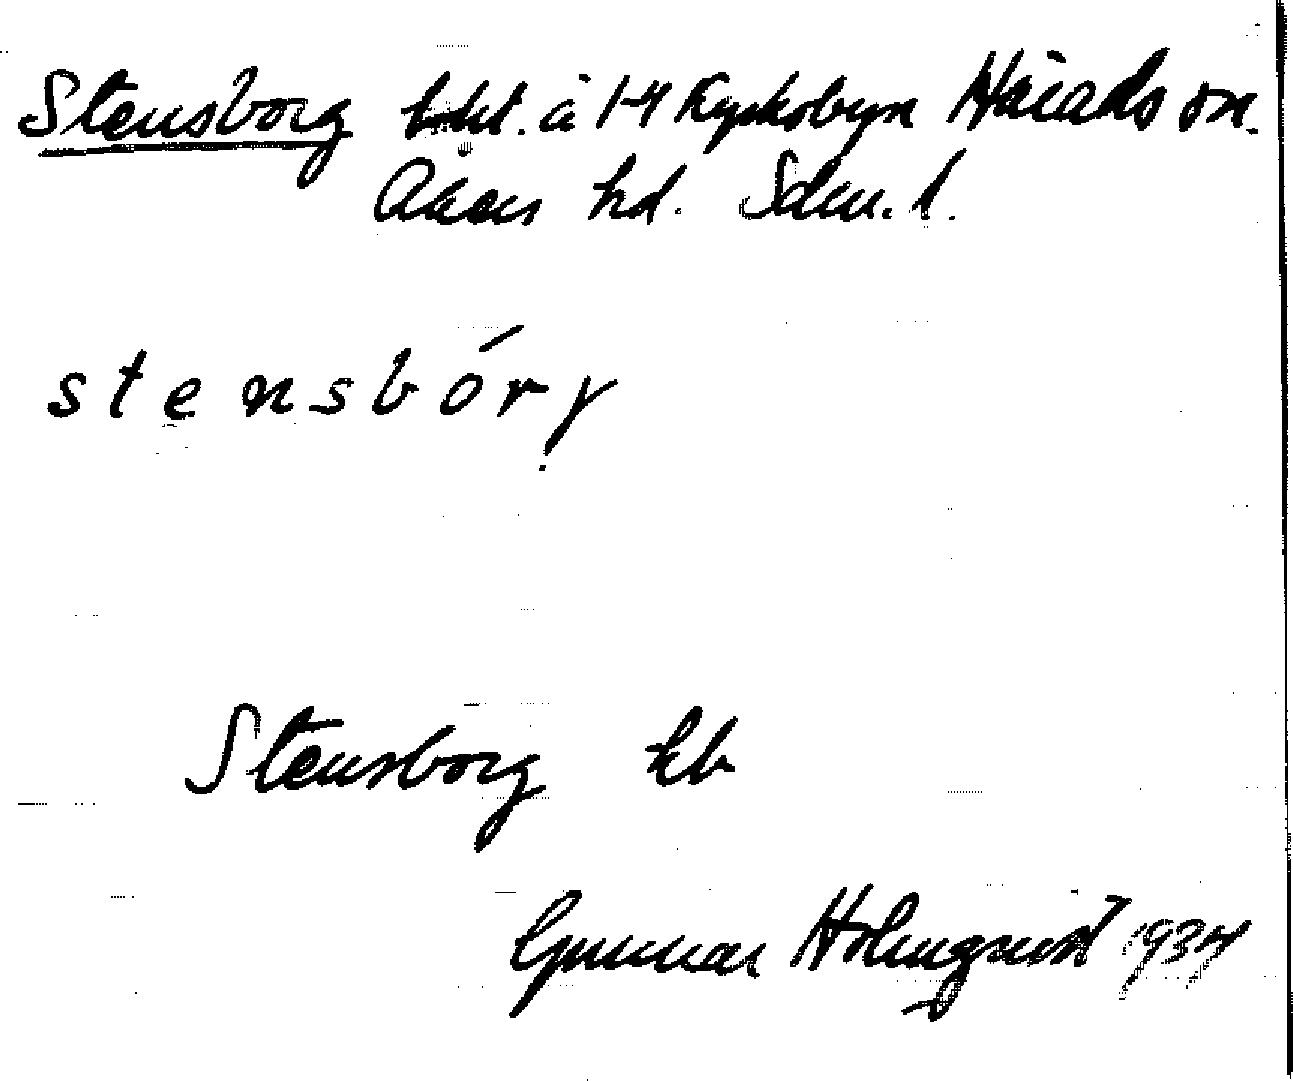 Stensborg lht. å 1-4 Kyrkobyn Härads sn.
Åkers hd. Sdm. l.
stensbórj
Stensborg kb
Gunnar Holmqvist 1934